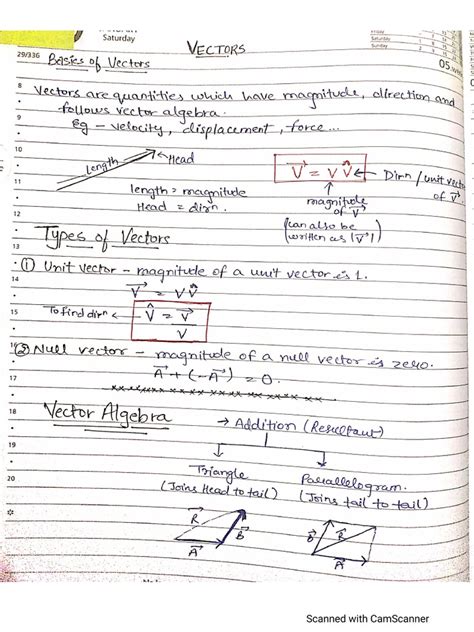 Saturday
VECTORS
Friday
Saturday
Sunday
29/336
05
Basics of Vectors
8
Vectors are quantities which have magnitude, direction and
follows vector algebra.
9
Eg - velocity, displacement, force...
10
Length
Head
11
V⃗ = V V̂ ← Dirⁿ / unit vector
of V⃗
length = magnitude
magnitude
of V⃗
12
Head = dirⁿ.
(can also be
written as |V⃗|)
Types of Vectors
13
① Unit vector - magnitude of a unit vector is 1.
14
V⃗ = V V̂
15
To find dirⁿ ← V̂ = V⃗/V
16
② Null vector - magnitude of a null vector is zero.
17
A⃗ + (-A⃗) = 0.
xxxxxxxxxxxxxxxxxxxxxxxx
18
Vector Algebra
→ Addition (Resultant)
19
Triangle
(Joins Head to tail)
Parallelogram.
(Joins tail to tail)
20
R⃗
B⃗
A⃗
B⃗
R⃗
A⃗
Scanned with CamScanner